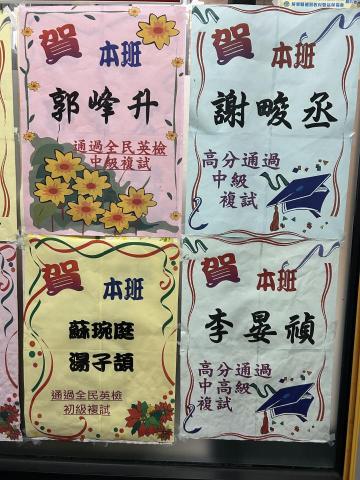 賀 本班
郭峰升
通過全民英檢
中級複試
賀 本班
謝畯丞
高分通過
中級
複試
賀 本班
蘇琬庭
湯子頡
通過全民英檢
初級複試
賀 本班
李晏禎
高分通過
中高級
複試